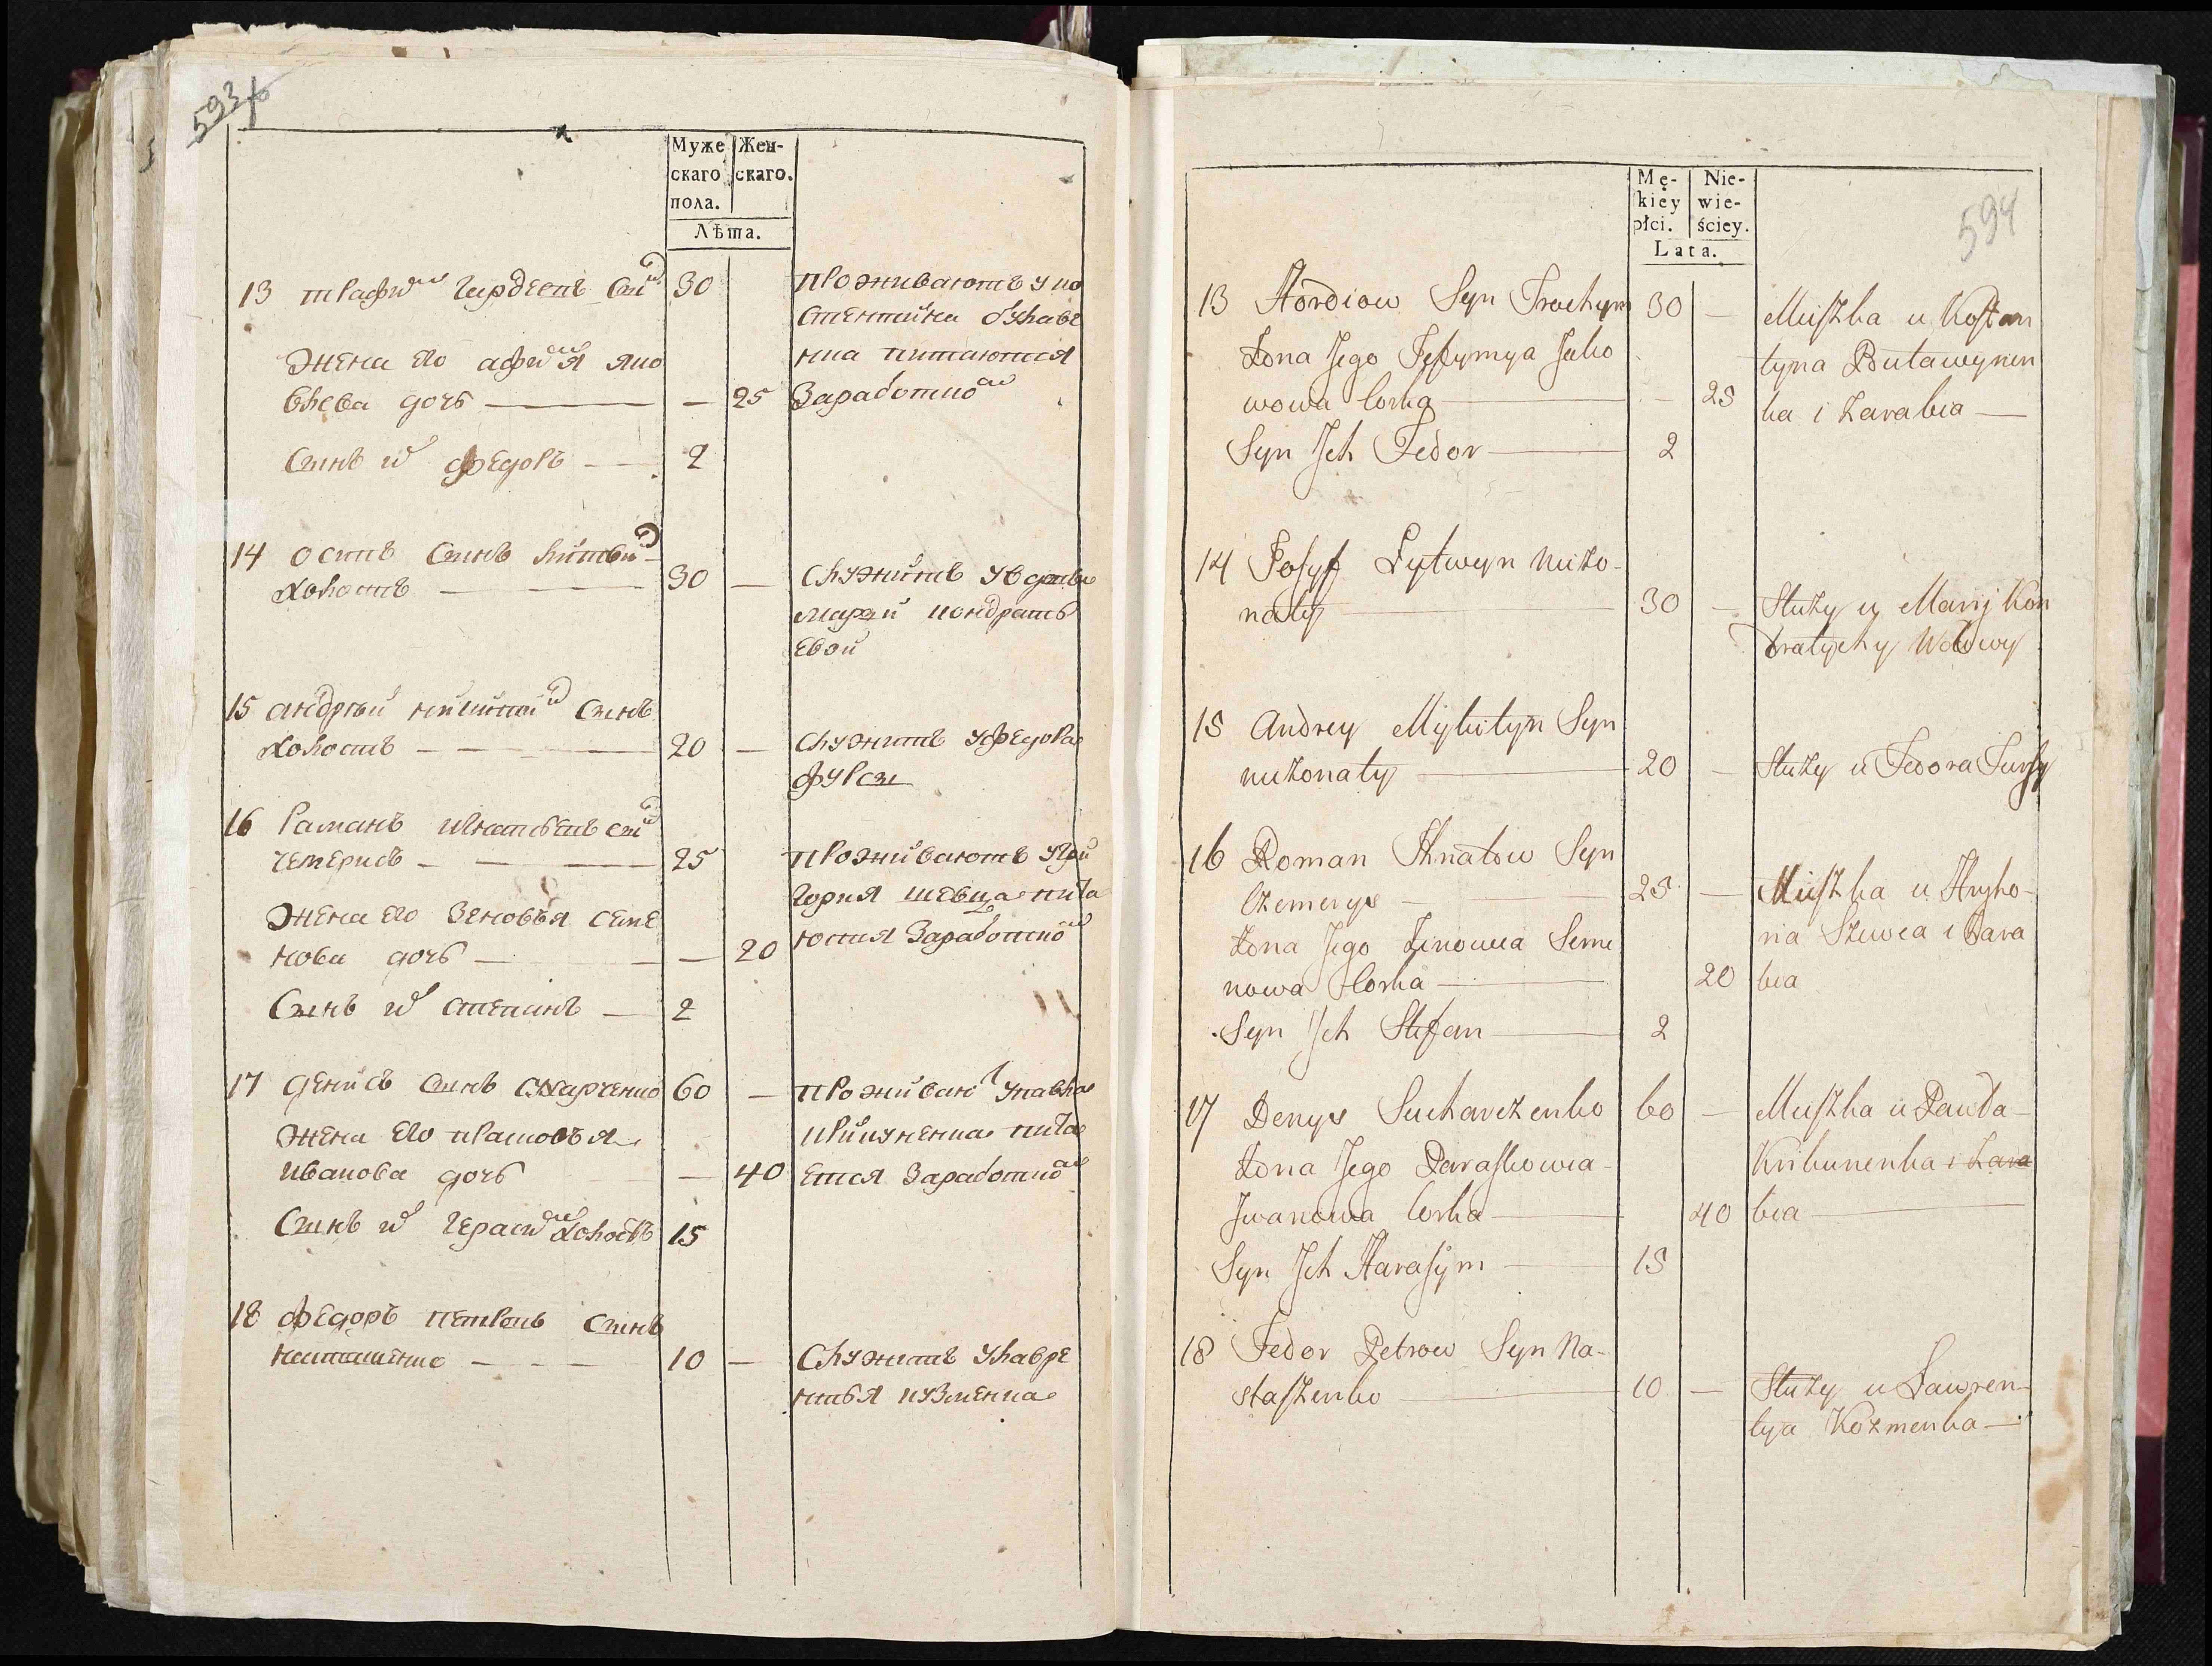 593
Муже
скаго
пола.
Жен-
скаго.
Лѣта.
13 трафим гардеевъ син 30
проживаютъ у ко
стентина булаве
нка питаются
Заработко
жена его афимия яко
влева дочь — — 25
Синъ их федоръ — 2
14 осипъ Синъ литвин
холостъ — 30 —
Служитъ у вдови
марии кондрать
евой
15 андрѣй никитин Синъ
холостъ — 20 —
Служитъ у федора
фурси
16 Раманъ игнатьевъ син
чемерисъ — 25
проживаютъ у гри
гория шевца пита
ются Заработко
жена его Зеновья семе
нова дочь — — 20
Синъ их степанъ — 2
17 денисъ Синъ сухарченко 60 —
проживаю у павла
крикуненка пита
ется Заработко
жена его прасковья
иванова дочь — 40
Синъ их герасим холостъ 15
18 федоръ петровъ Синъ
насташенко — 10 —
Служитъ у лавре
нтья кузменка
Mę-
kiey
płci.
Nie-
wie-
ściey.
Lata.
594
13 Hordiow Syn Trochym 30 —
Miszka u Kostan
tyna Bulawynen
ka i Zarabia —
Żona Jego Jefymya Jako
wowa Corka — — 25
Syn Jch Fedor — 2
14 Josyf Lytwyn niżo-
naty — 30 —
Służy u Maryj Kon
dratychy Wdowy
15 Andrey Mykityn Syn
niżonaty — 20 —
Służy u Fedora Fursy
16 Roman Ihnatow Syn
Czemerys — 25 —
Miszka u Hryho-
ria Szewca i Zara
bia
Żona Jego Zinowia Seme
nowa Corka — 20
Syn Jch Stefan — 2
17 Denys Sucharczenko 60 —
Miszka u Pawła
Krikunenka i Zara
bia —
Żona Jego Paraskowia
Jwanowa Corka — 40
Syn Jch Harasym — 15
18 Fedor Petrow Syn Na-
staszenko — 10 —
Służy u Lawren-
tyja Kozmenka —